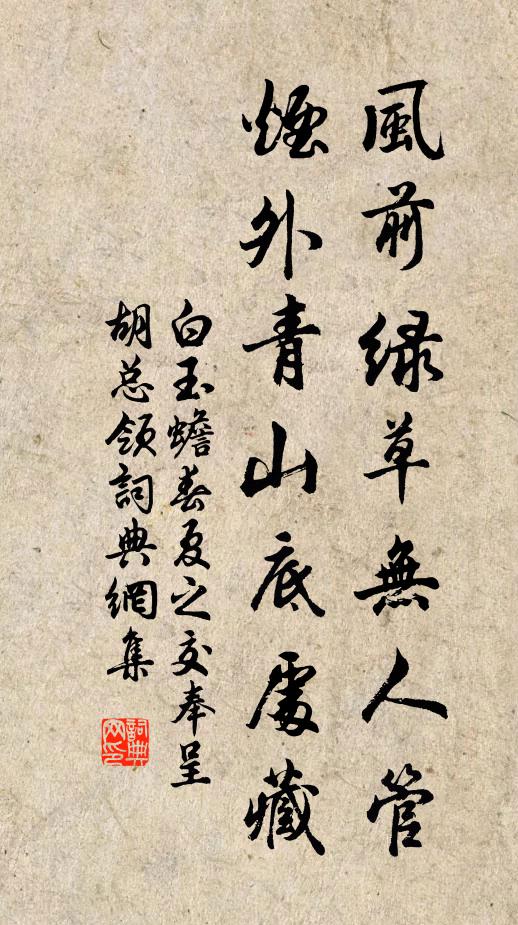 風前綠草無人管
煙外青山底處藏
白玉蟾春夏之交奉呈
胡总領詞典網集
詞典
网印